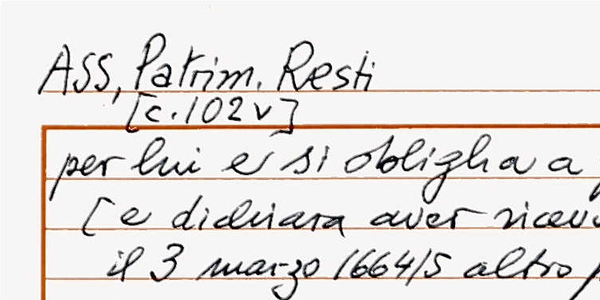 ASS, Patrim. Resti
[c.102v]
per lui e si obligha a
[e dichiara aver
il 3 marzo 1664/5 altro